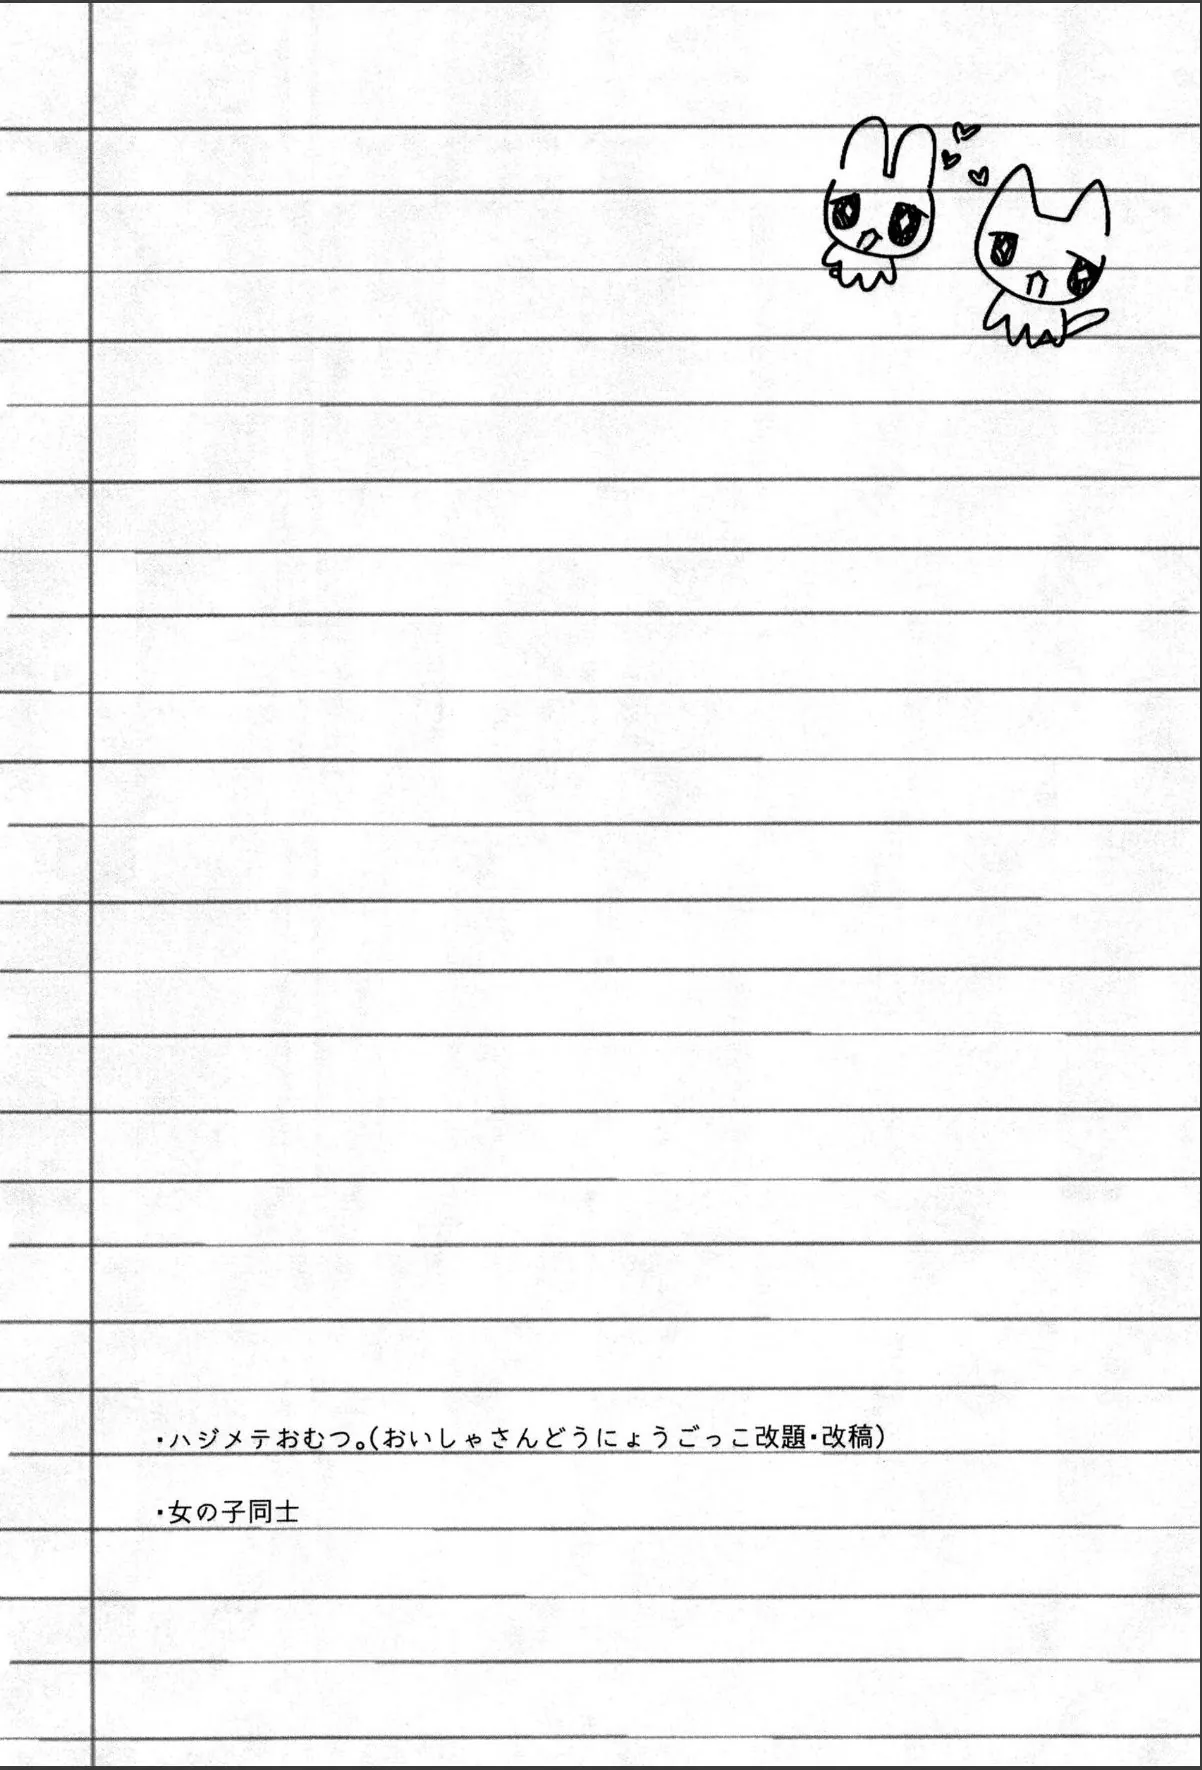 ・ハジメテおむつ。(おいしゃさんどうにょうごっこ改題・改稿)
・女の子同士